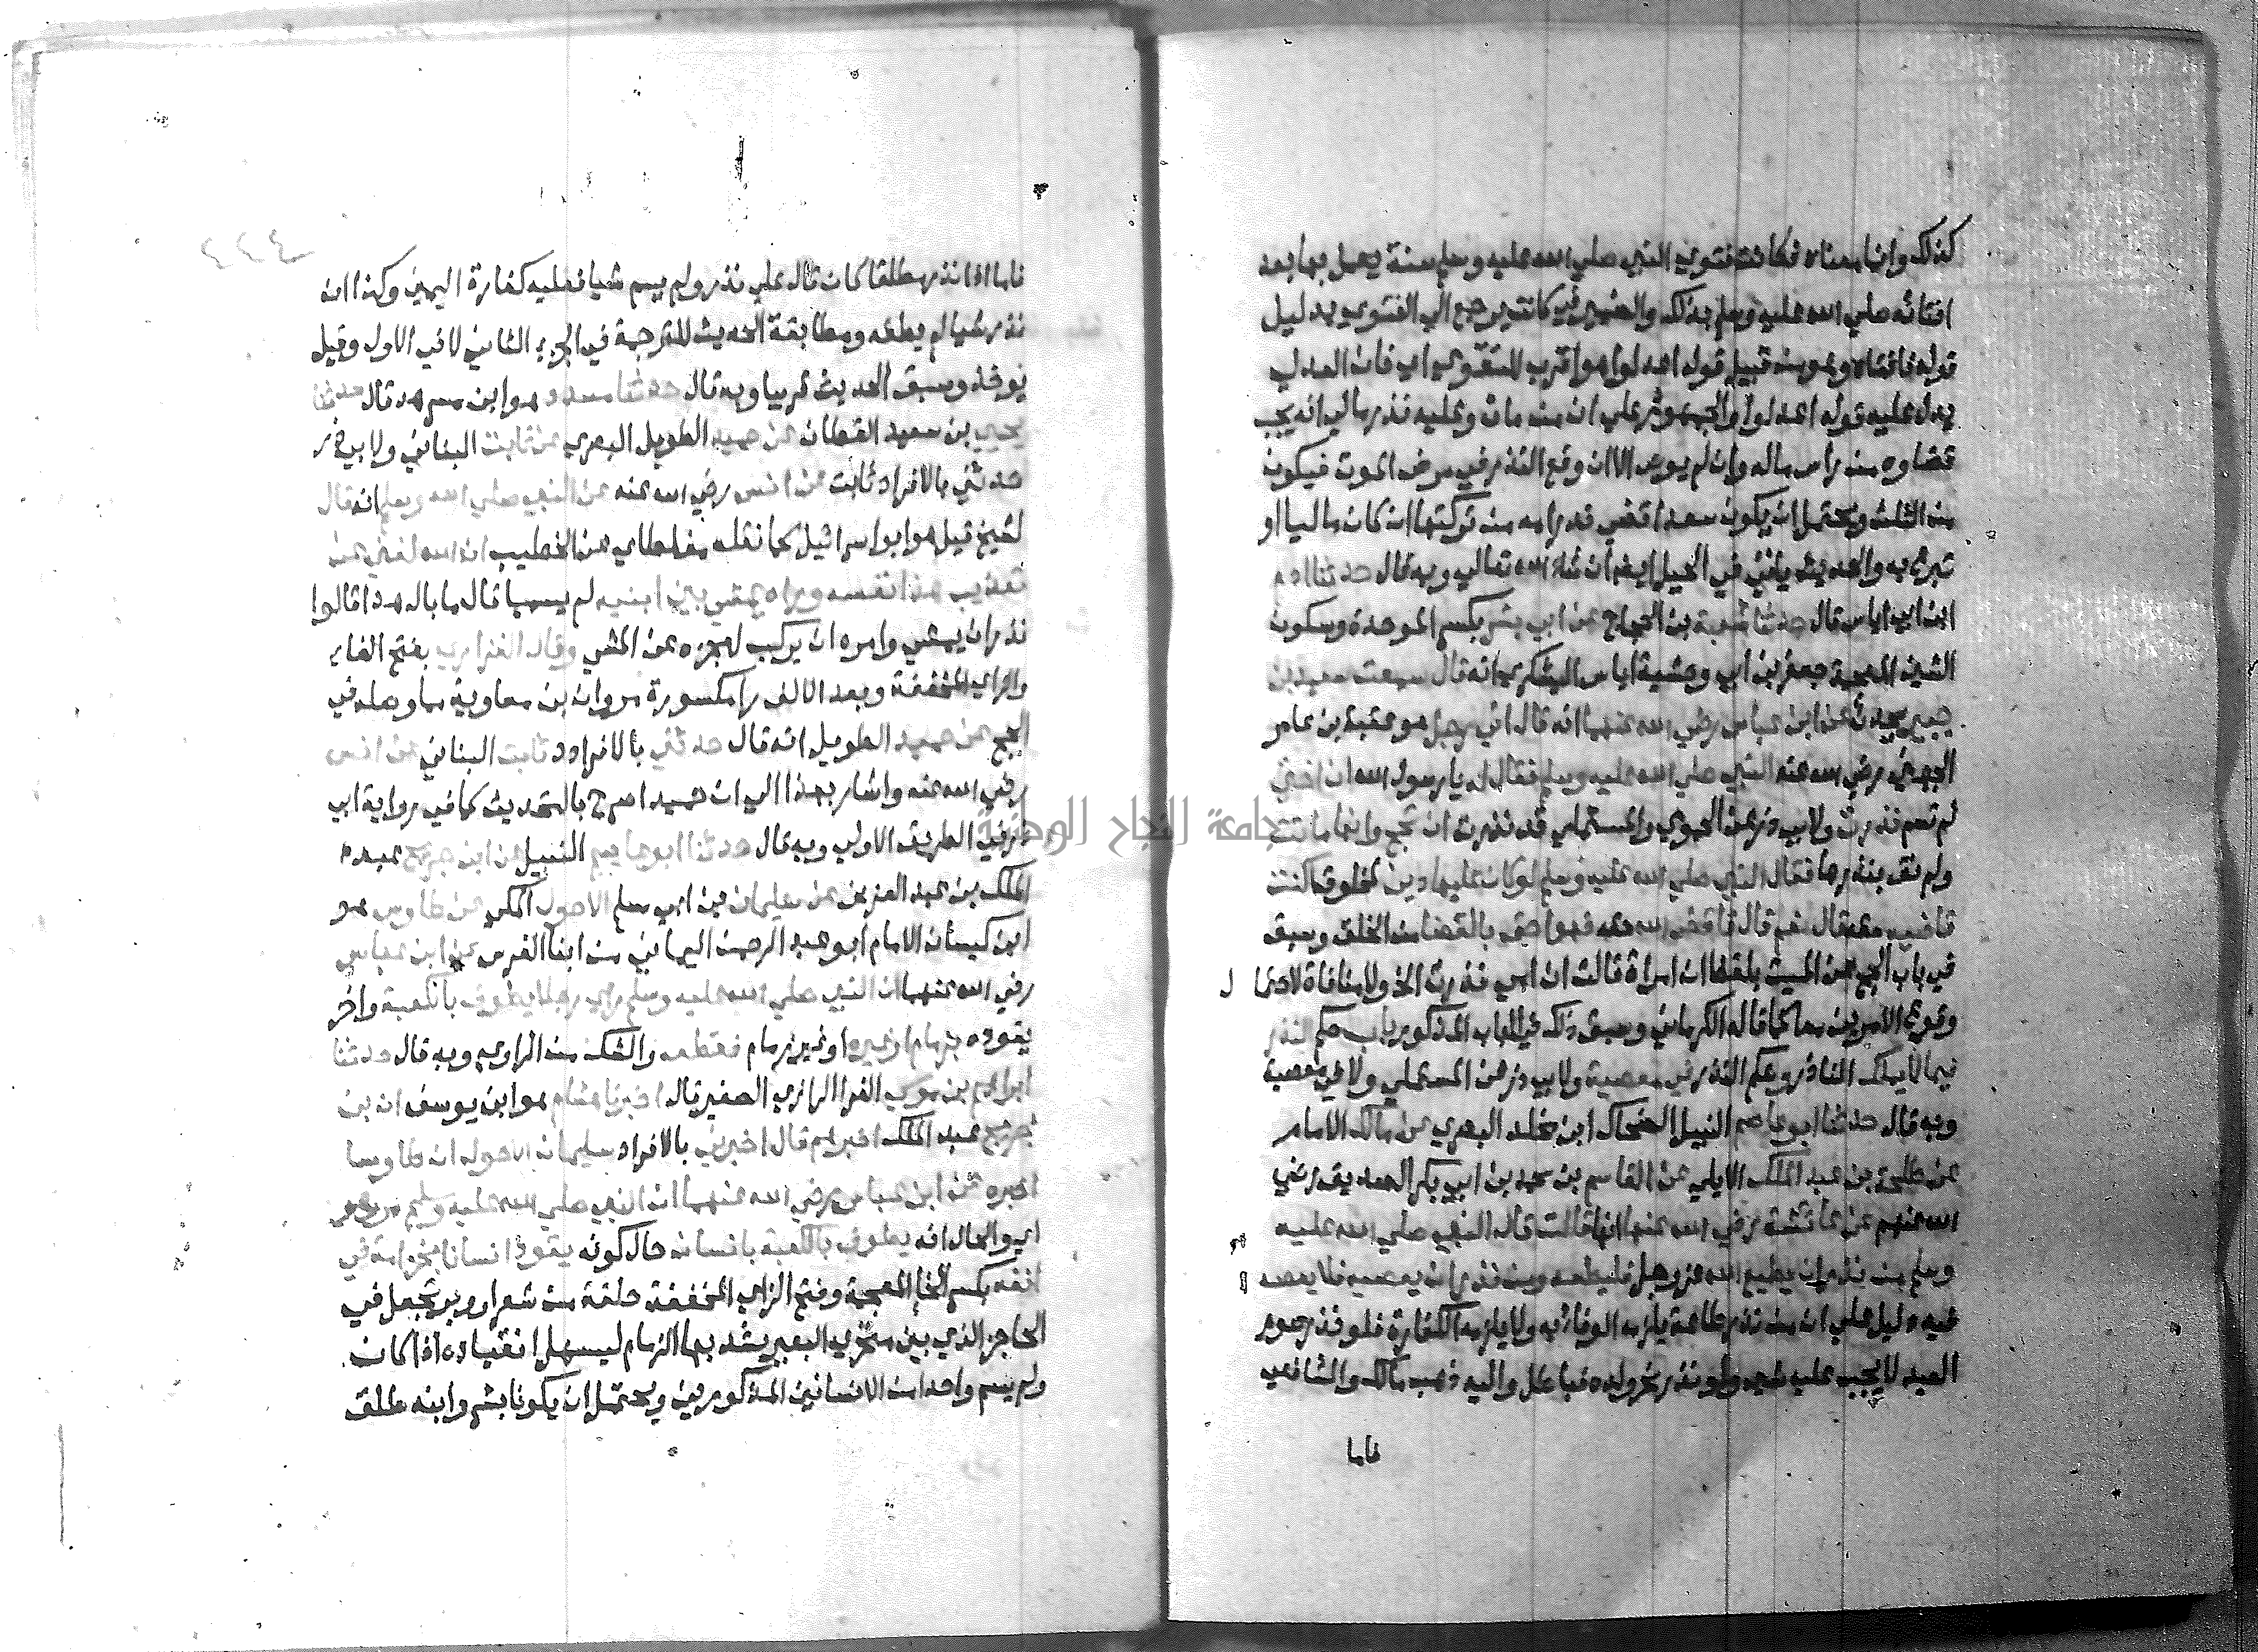 كذلك وانما معناه فكانت فتوي النبي صلي الله عليه وسلم سنة يعمل بها بعد
افتائه صلي الله عليه وسلم بذلك والضمير في كانت يرجع الي الفتوي بدليل
قوله فافتاه وهو من قبيل قوله اعدلوا هو اقرب للتقوي اي فان العدل
يدل عليه قوله اعدلوا والجمهور علي ان من مات وعليه نذر مالي انه يجب
قضاوه من راس ماله وان لم يوص الا ان وقع النذر في مرض الموت فيكون
من الثلث ويحتمل ان يكون سعد اقضي نذر امه من تركتها ان كان ماليا او
تبرع به والحديث ياتي في الحيل ايضا ان شاء الله تعالي وبه قال حدثنا ادم
ابن ابي اياس قال حدثنا شعبة بن الحجاج عن ابي بشر بكسر الموحدة وسكون
الشين المعجمة جعفر بن ابي وحشية اياس اليشكري انه قال سمعت سعيد بن
جبير يحدث عن ابن عباس رضي الله عنهما انه قال اتي رجل هو عقبة بن عامر
الجهني رضي الله عنه النبي صلي الله عليه وسلم فقال له يا رسول الله ان اختي
لم تصم نذرت ولابي ذر عن الحموي والمستملي قد نذرت ان تحج وانها ماتت
ولم تف بنذرها فقال النبي صلي الله عليه وسلم لو كان عليها دين لمخلوق اكنت
قاضيه عنها قال نعم قال فاقض الله حقه فهو احق بالقضا من الخلق وسبق
في باب الحج عن الميت بلفظ ان امراة قالت ان امي نذرت الخ ولا منافاة لاحتما ل
وقوع الامرين معا كما قاله الكرماني وسبق ذلك في الباب المذكور باب حكم النذر
فيما لا يملك الناذر وحكم النذر في معصية ولابي ذر عن المستملي ولا في معصية
وبه قال حدثنا ابو عاصم النبيل الضحاك ابن مخلد البصري عن مالك الامام
عن طلحة بن عبد الملك الايلي عن القاسم بن محمد بن ابي بكر الصديق رضي
الله عنهم عن عائشة رضي الله عنها انها قالت قال النبي صلي الله عليه
وسلم من نذر ان يطيع الله عز وجل فليطعه ومن نذر ان يعصيه فلا يعصه
فيه دليل علي ان من نذر طاعة يلزمه الوفا به ولا يلزمه الكفارة فلو نذر صوم
العيد لا يجب عليه شي ولو نذر نحر ولده فباطل واليه ذهب مالك والشافعي
فاما
فاما اذا نذر مطلقا كان قال علي نذر ولم يسم شيا فعليه كفارة اليمين وكذا ان
نذر شيا لم يطقه ومطابقة الحديث للترجمة في الجزء الثاني لا في الاول وقيل
يوخذ وسبق الحديث قريبا وبه قال حدثنا مسدد هو ابن مسرهد قال حدثنا
يحيي بن سعيد القطان عن حميد الطويل البصري عن ثابت البناني ولابي ذر
حدثني بالافراد ثابت عن انس رضي الله عنه عن النبي صلي الله وسلم انه قال
لشيخ قيل هو ابو اسرائيل كما نقله مغلطاي عن الخطيب ان الله لغني عن
تعذيب هذا نفسه وراه يمشي بين ابنيه لم يسميا قال ما بال هذا قالوا
نذر ان يمشي وامره ان يركب لعجزه عن المشي وقال الفزاري بفتح الفاء
والزاي المخففة وبعد الالف را مكسورة مروان بن معاوية مما وصله في
الحج عن حميد الطويل انه قال حدثني بالافراد ثابت البناني عن انس
رضي الله عنه واشار بهذا الي ان حميدا صرح بالتحديث كما في رواية ابي
ذر في الطريق الاولي وبه قال حدثنا ابو عاصم النبيل عن ابن جريج عبد
الملك بن عبد العزيز عن سليمان بن ابي مسلم الاحول المكي عن طاوس هو
ابن كيسان الامام ابو عبد الرحمن اليماني من ابنا الفرس عن ابن عباس
رضي الله عنهما ان النبي صلي الله عليه وسلم راي رجلا يطوف بالكعبة واخر
يقوده بزمام او غيره او غير زمام فقطعه والشك من الراوي وبه قال حدثنا
ابراهيم بن موسي الفرا الرازي الصغير قال اخبرنا هشام هو ابن يوسف ان بن
جريج عبد الملك اخبرهم قال اخبرني بالافراد سليمان الاحول ان طاوسا
اخبره عن ابن عباس رضي الله عنهما ان النبي صلي الله عليه وسلم مر وهو
اي والحال انه يطوف بالكعبة بانسان حال كونه يقود انسانا بخزامة في
انفه بكسر الخا المعجمة وفتح الزاي المخففة حلقة من شعر او وبر تجعل في
الحاجز الذي بين منخري البعير يشد بها الزمام ليسهل انقياده اذا كان
ولم يسم واحد من الانسانين المذكورين ويحتمل ان يكونا بشر وابنه طلق
جامعة النجاح الوطنية